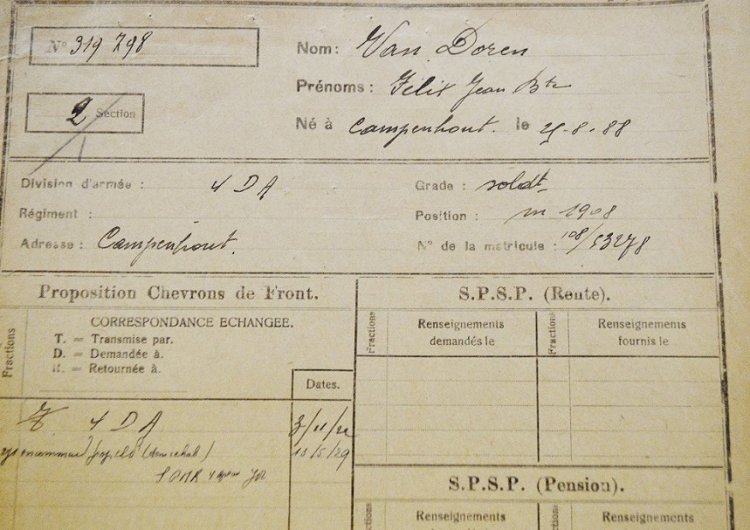 N° 319 798
Nom: Van Doren
Prénoms: Félix Jean Bte
2 Section
Né à Campenhout. le 25-8-88
Division d'armée: 4 DA
Grade: soldt
Régiment:
Position: m 1908
Adresse: Campenhout.
N° de la matricule: 108/53278
Proposition Chevrons de Front.
S.P.S.P. (Rente).
Fractions
CORRESPONDANCE ECHANGEE.
T. = Transmise par.
D. = Demandée à.
R. = Retournée à.
Dates.
Fractions
Renseignements demandés le
Fractions
Renseignements fournis le
T. 4 DA 3/11/22
13/5/29
S.P.S.P. (Pension).
Renseignements
Renseignements